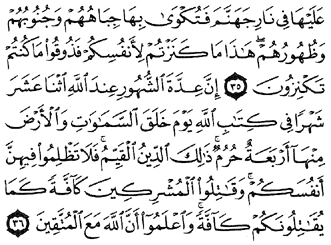 عَلَيْهَا فِي نَارِ جَهَنَّمَ فَتُكْوَىٰ بِهَا جِبَاهُهُمْ وَجُنُوبُهُمْ
وَظُهُورُهُمْ ۖ هَٰذَا مَا كَنَزْتُمْ لِأَنفُسِكُمْ فَذُوقُوا۟ مَا كُنتُمْ
تَكْنِزُونَ ٣٥ إِنَّ عِدَّةَ ٱلشُّهُورِ عِندَ ٱللَّهِ ٱثْنَا عَشَرَ
شَهْرًا فِي كِتَٰبِ ٱللَّهِ يَوْمَ خَلَقَ ٱلسَّمَٰوَٰتِ وَٱلْأَرْضَ
مِنْهَآ أَرْبَعَةٌ حُرُمٌ ۚ ذَٰلِكَ ٱلدِّينُ ٱلْقَيِّمُ ۚ فَلَا تَظْلِمُوا۟ فِيهِنَّ
أَنفُسَكُمْ ۚ وَقَٰتِلُوا۟ ٱلْمُشْرِكِينَ كَآفَّةً كَمَا
يُقَٰتِلُونَكُمْ كَآفَّةً ۚ وَٱعْلَمُوٓا۟ أَنَّ ٱللَّهَ مَعَ ٱلْمُتَّقِينَ ٣٦